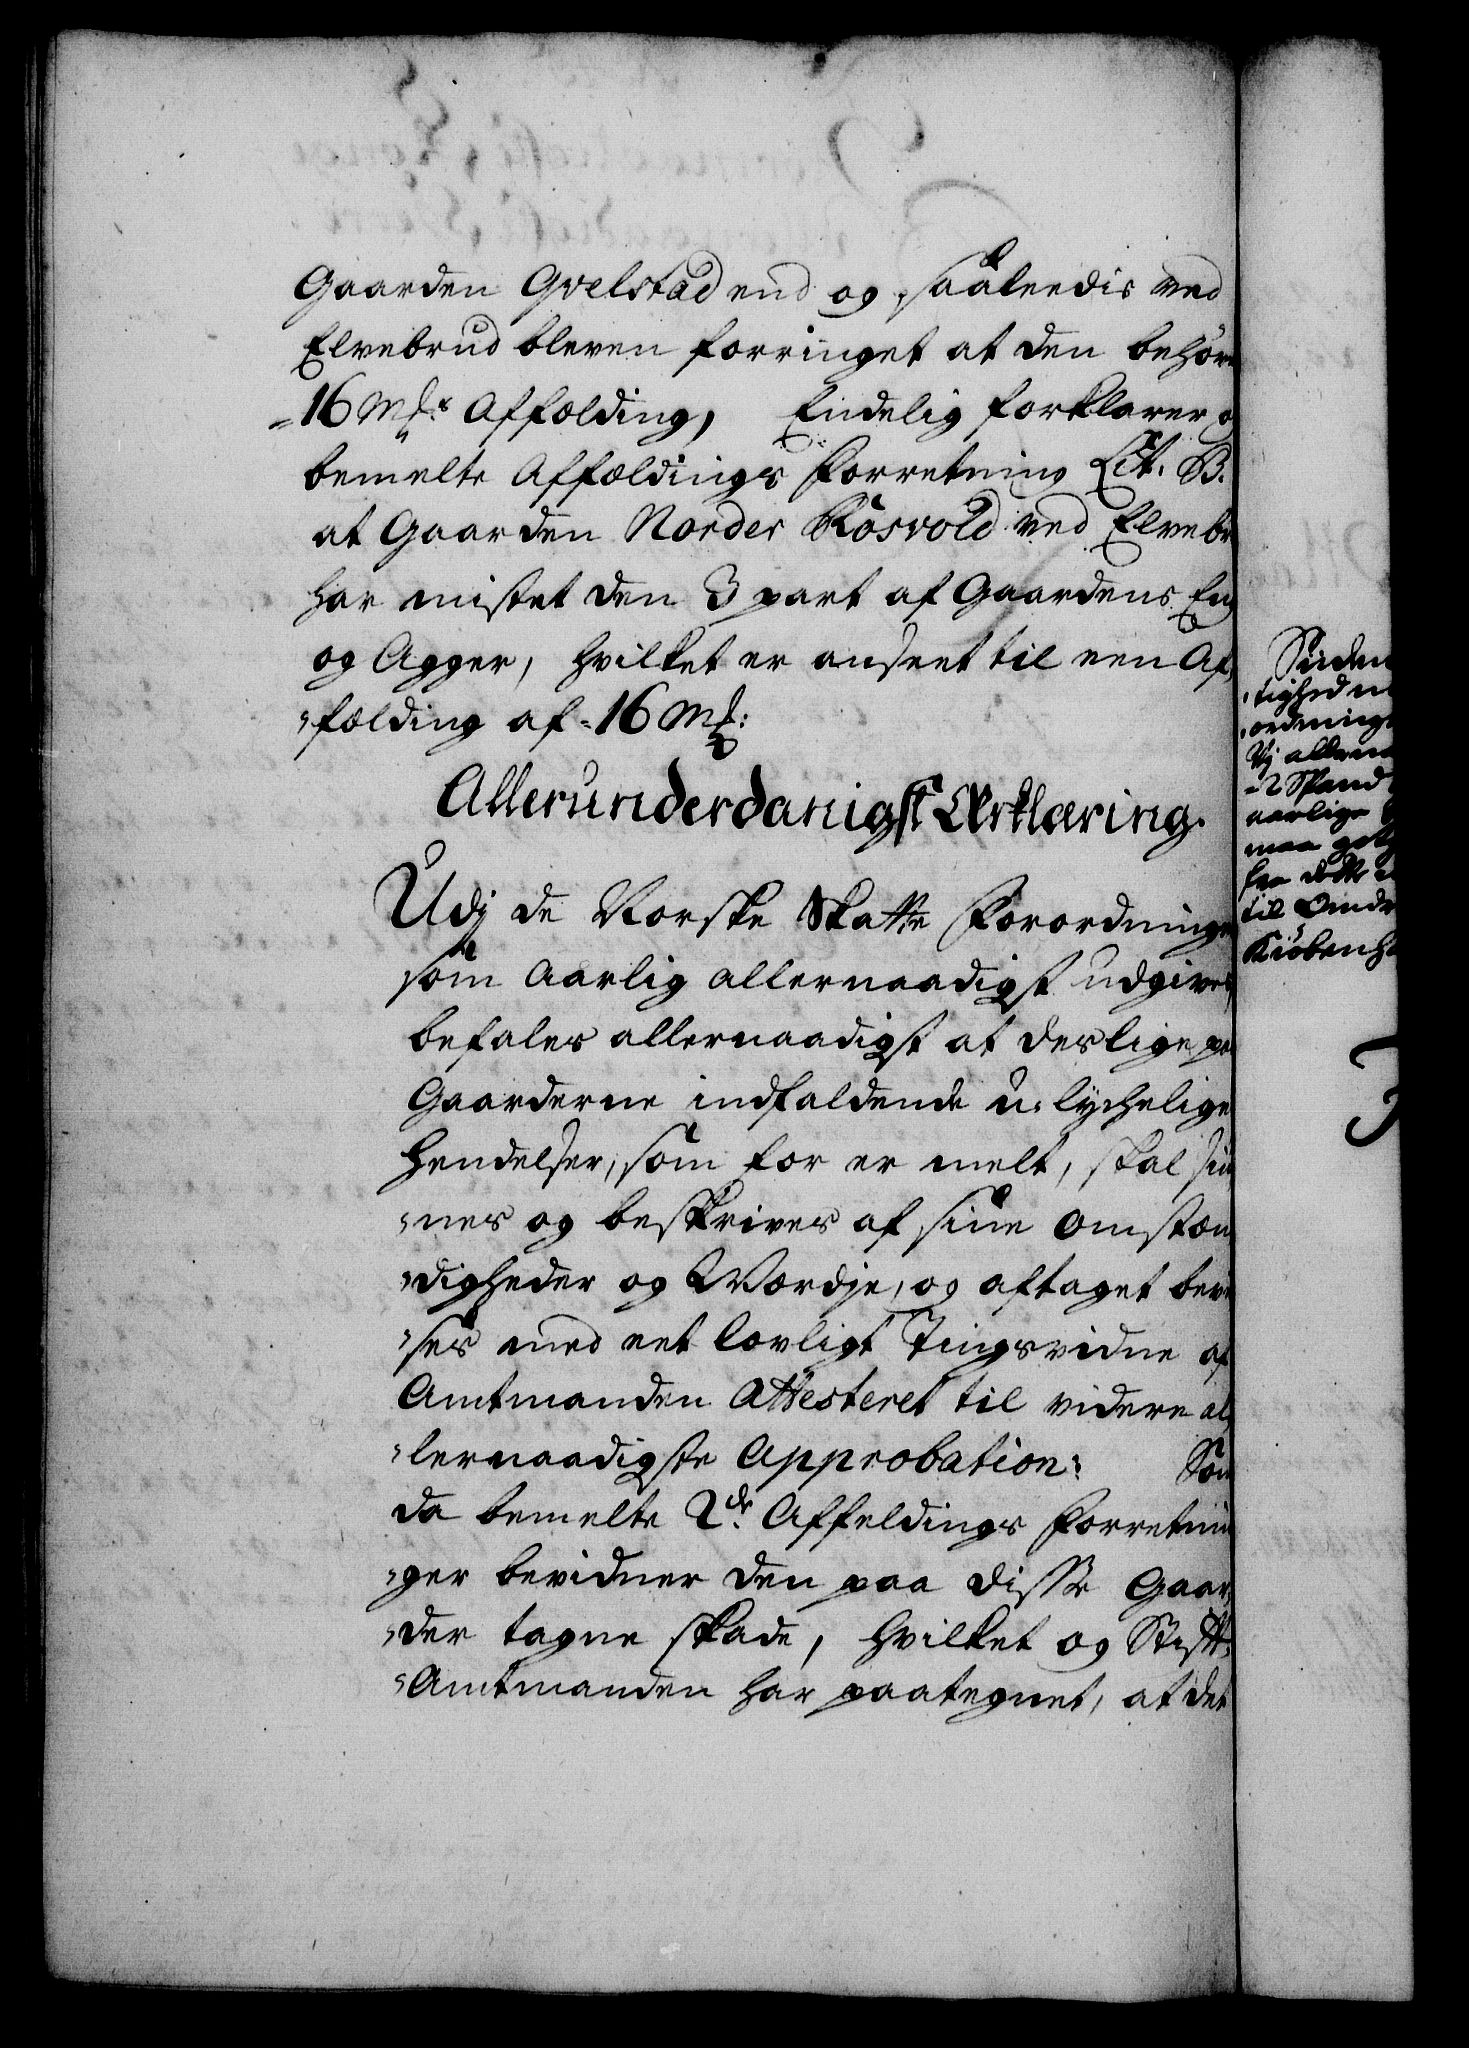 Gaarden Qvelstad end og saaleedis ved
Elvebrud bleven forringet at den behöve
16 Mkr Affælding, Endelig forklarer og
bemelte Affældings Forretning Lit. B.
at Gaarden Norder Rosvold ved Elvebr
har mistet den 3 part af Gaardens Eng
og Agger, hvilket er anseet til een Af
fælding af 16 Mk:
Allerunderdanigst Erklæring.
Udj de Norske Skatte Forordninger
som Aarlig allernaadigst udgives,
befales allernaadigst at deslige paa
Gaarderne indfaldende u-lychelige
Hendelser, som for er melt, skal siu
nes og beskrives af sine Omstæn
digheder og Wærdje, og aftaget bevi
ses med eet lovligt Tingsvidne af
Amtmanden Attesteret til videre al
lernaadigste Approbation: Som
da bemelte 2de Affeldings Forretnin
ger bevidner den paa disse Gaar
der tagne skade, hvilket og Stifft
Amtmanden har paategnet, at det
Siden
tighed
ordning
Vj allern
2 Spand
aarlige
maa
fra dette
til
Kiöbenh